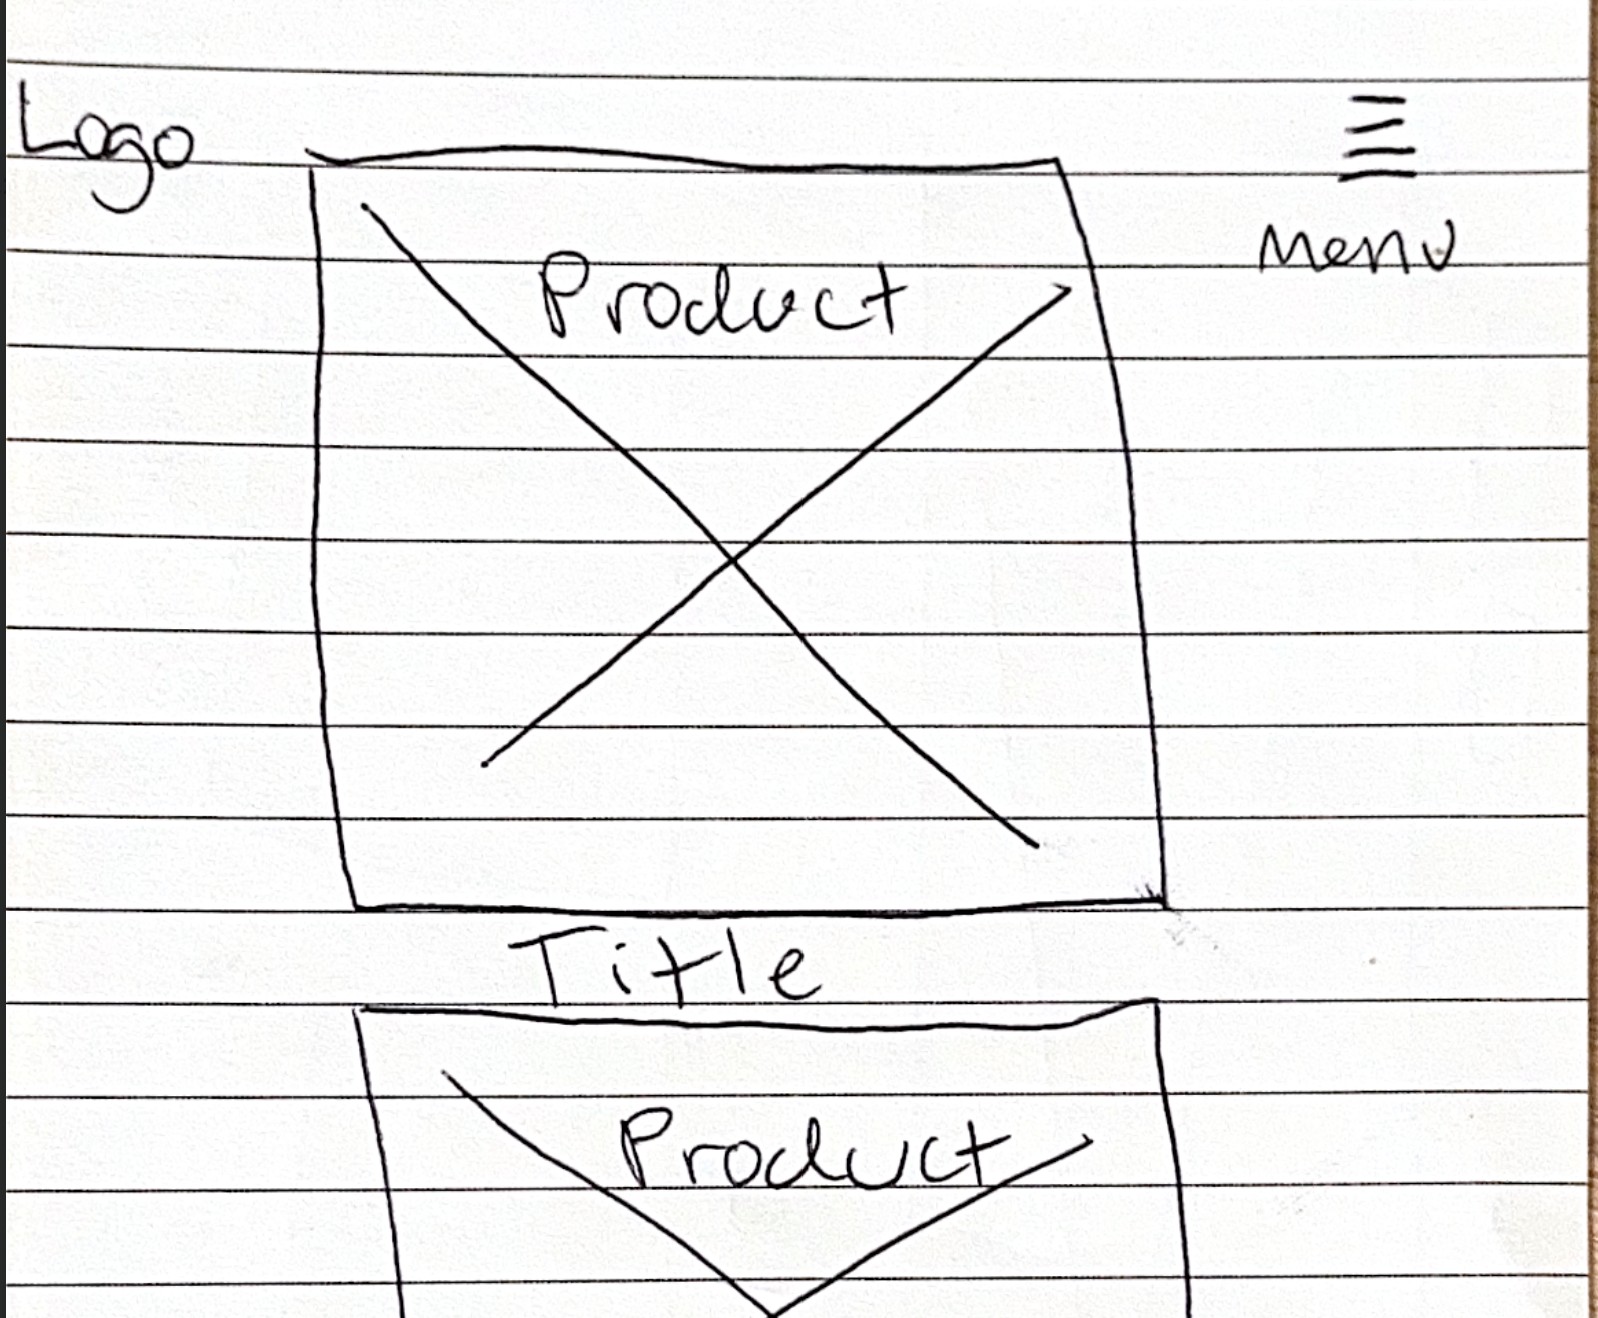 Logo
Menu
Product
Title
Product